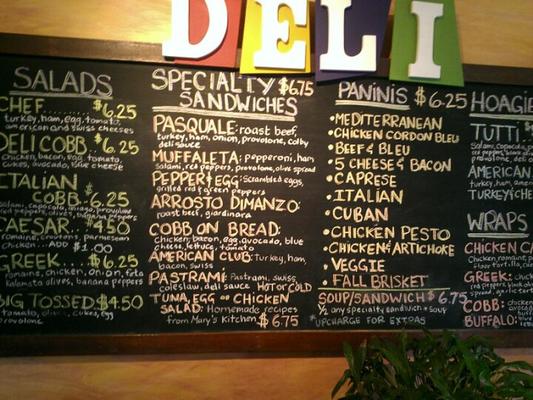 DELI
SALADS
CHEF........$6.25
turkey, ham, egg, tomato,
american and swiss cheeses
DELI COBB.$6.25
chicken, bacon, egg, tomato,
cukes, avocado, blue cheese
ITALIAN
COBB.$6.25
salami, capocolla, provolone
red peppers, olives, banana peppers
CAESAR...$4.50
Romaine, croutons, parmesan
Chicken...ADD $1.00
GREEK.....$6.25
romaine, chicken, onion, feta
Kalamata olives, banana peppers
BIG TOSSED.$4.50
tomato, olives, cukes, egg
provolone
SPECIALTY $6.75
SANDWICHES
PASQUALE: roast beef,
turkey, ham, onion, provolone, colby
deli sauce
MUFFALETA: pepperoni, ham
salami, red peppers, provolone, olive spread
PEPPER & EGG: Scrambled eggs,
grilled red & green peppers
ARROSTO DIMANZO:
roast beef, giardinara
COBB ON BREAD:
Chicken, bacon, egg, avocado, blue
cheese, lettuce, tomato
AMERICAN CLUB: turkey, ham,
bacon, swiss
PASTRAMI: Pastrami, swiss,
coleslaw, deli sauce HOT or COLD
TUNA, EGG or CHICKEN
SALAD: Homemade recipes
from Mary's kitchen $6.75
PANINIS $6.25
• MEDITERRANEAN
• CHICKEN CORDON BLEU
• BEEF & BLEU
• 5 CHEESE & BACON
• CAPRESE
• ITALIAN
• CUBAN
• CHICKEN PESTO
• CHICKEN & ARTICHOKE
• VEGGIE
• FALL BRISKET
SOUP/SANDWICH $6.75
½ any specialty sandwich + soup
*UPCHARGE FOR EXTRAS
HOAGIE
TUTTI
Salami, capocol
provolone, deli
AMERICAN
turkey, ham, amer
TURKEY & CHE
WRAPS
CHICKEN CA
GREEK:
COBB: chicken
BUFFALO: